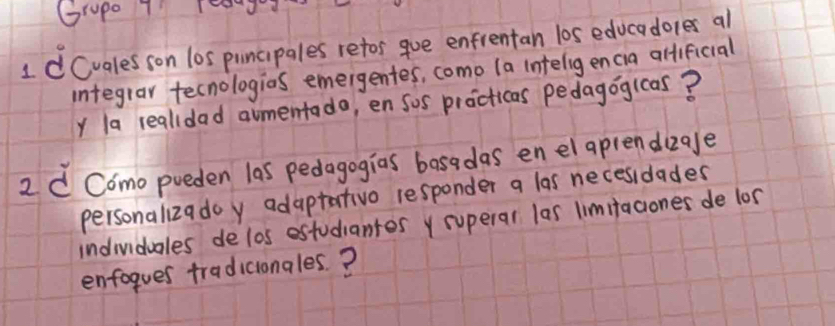 Grupo 4:
1 ¿Cuales son los principales retos que enfrentan los educadores al
integrar tecnologias emergentes, como la inteligencia artificial
y la realidad aumentada, en sus prácticas pedagógicas?
2 ¿Cómo pueden las pedagogías basadas en el aprendizaje
personalizado y adaptativo responder a las necesidades
individuales de los estudiantes y superar las limitaciones de los
enfoques tradicionales.?